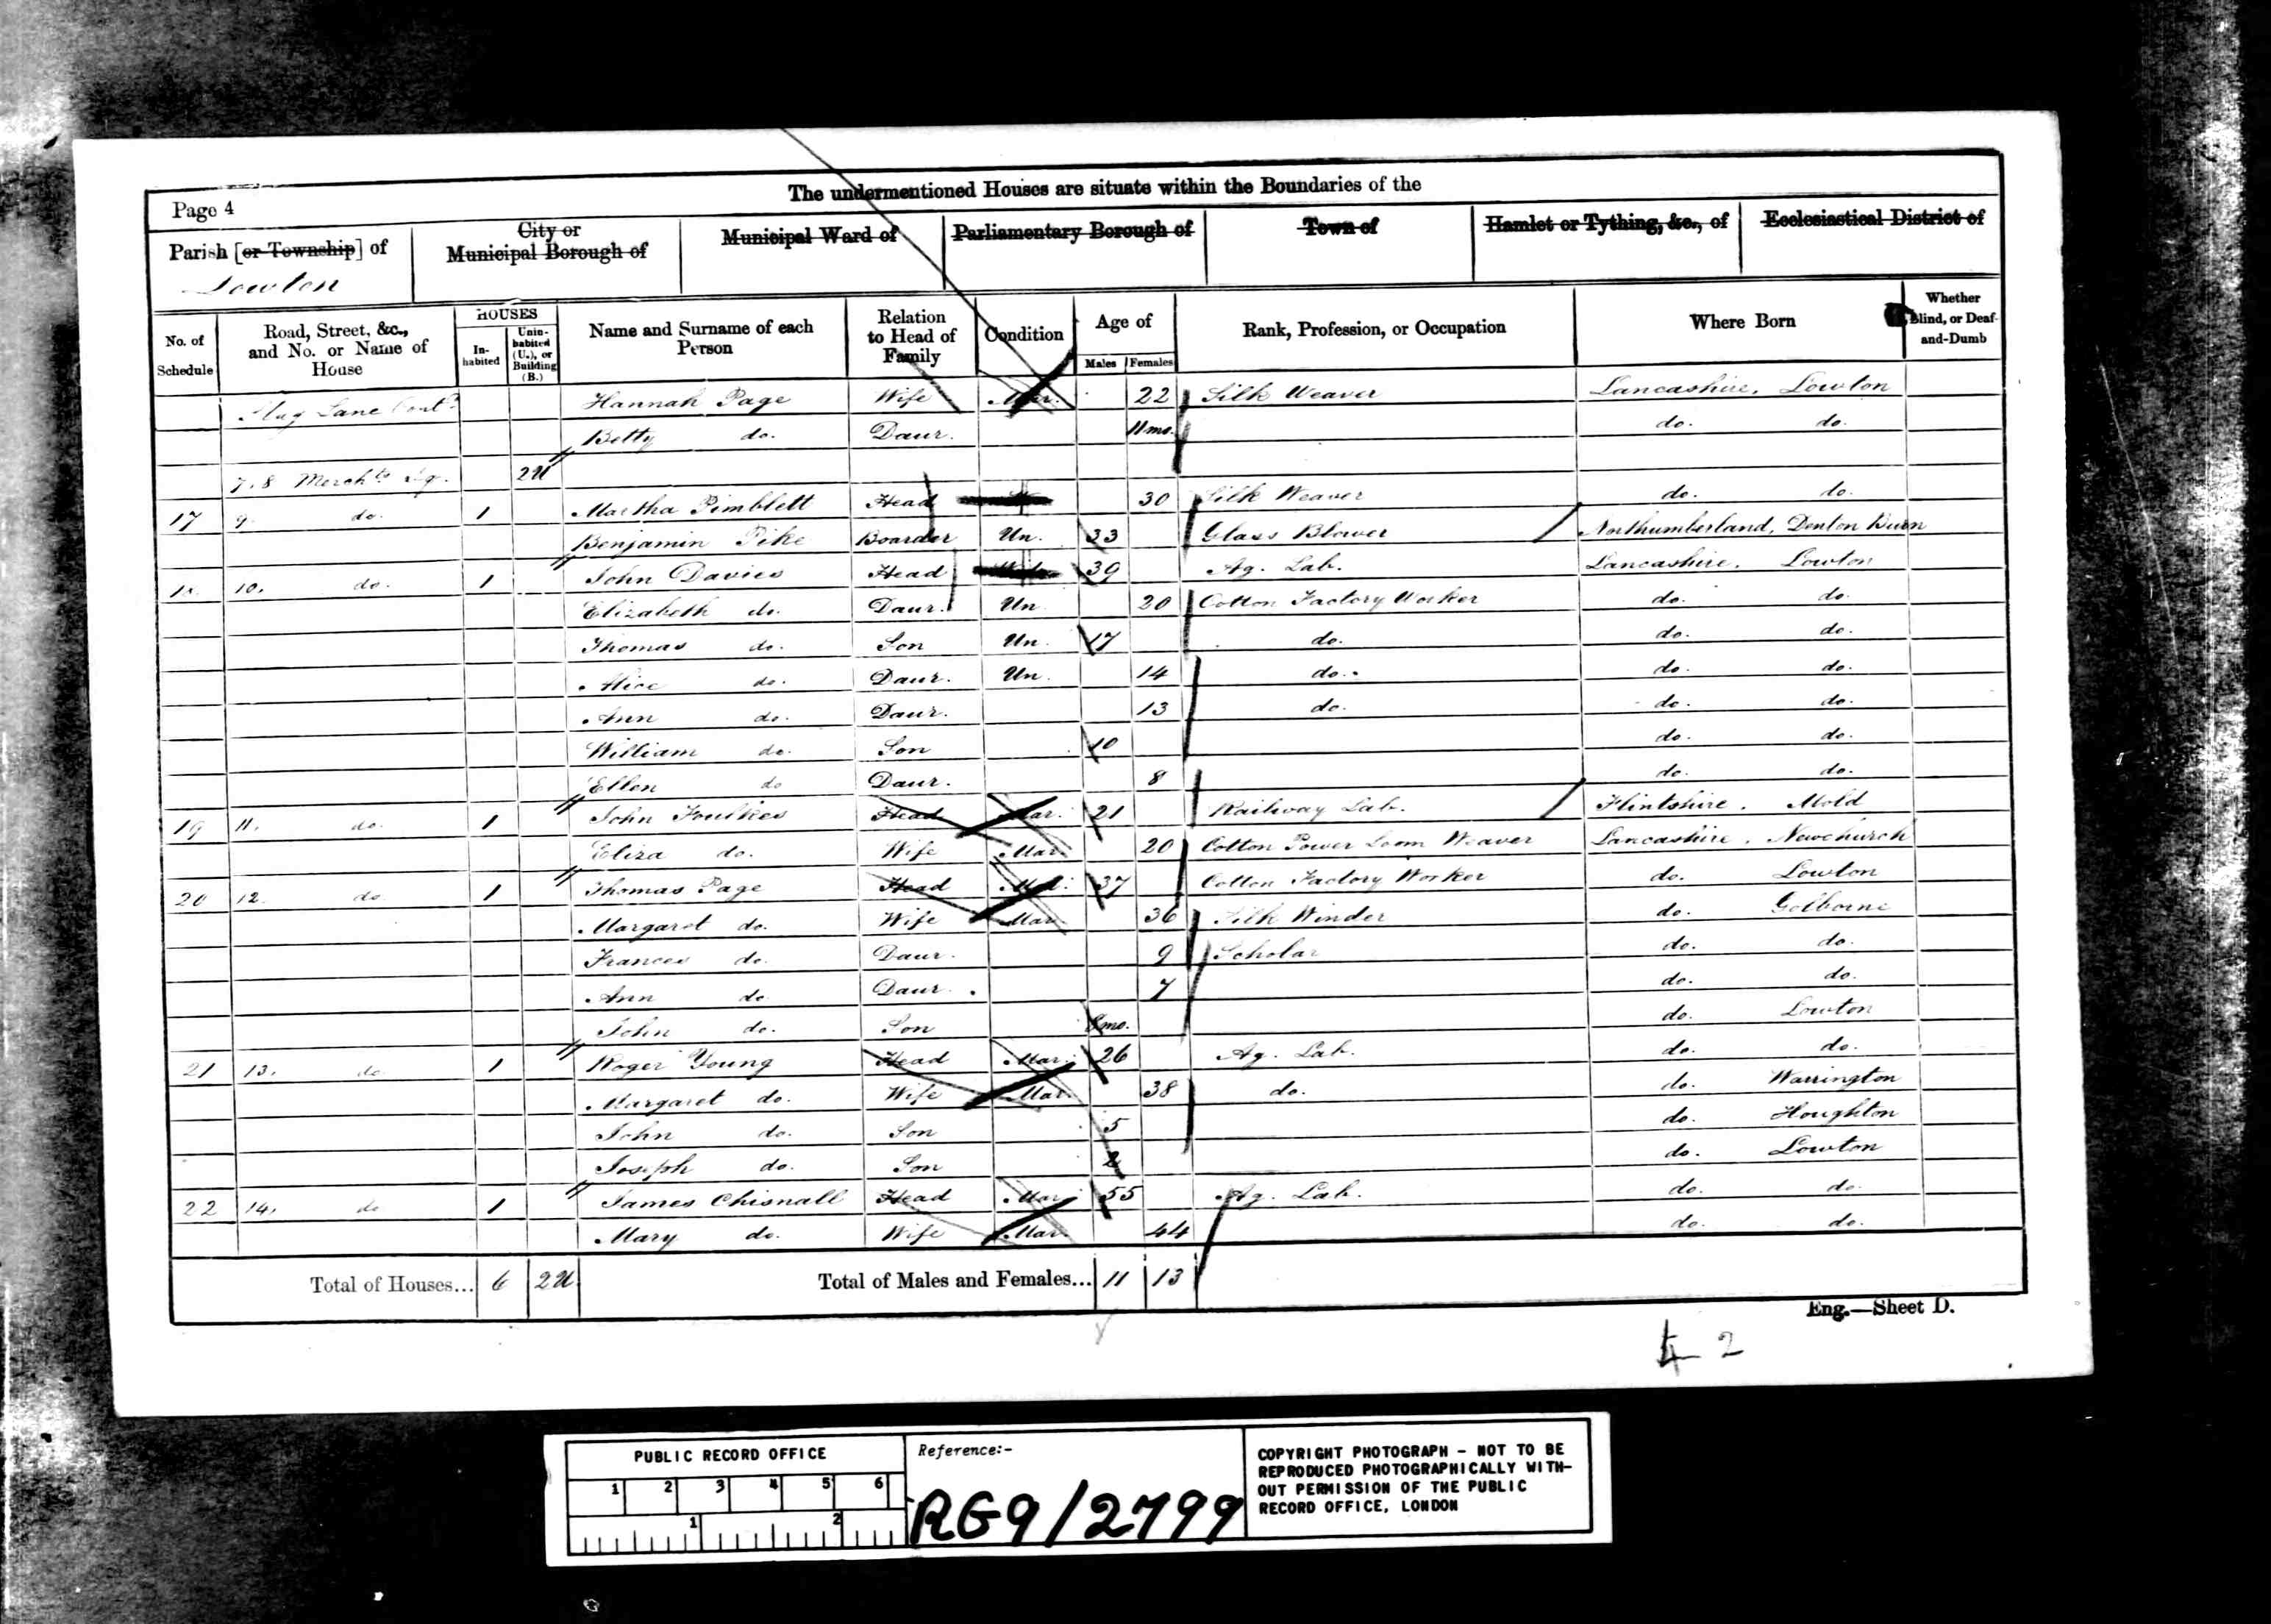 The undermentioned Houses are situate within the Boundaries of the
Page 4
Parish [or Township] of
Lowton
City or
Municipal Borough of
Municipal Ward of
Parliamentary Borough of
Town of
Hamlet or Tything, &c., of
Ecclesiastical District of
No. of Schedule
Road, Street, &c., and No. or Name of House
HOUSES
In-habited
Unin-habited (U.), or Building (B.)
Name and Surname of each Person
Relation to Head of Family
Condition
Age of
Males Females
Rank, Profession, or Occupation
Where Born
Whether Blind, or Deaf-and-Dumb
Lane Contd Hannah Page Wife Mar. 22 Silk Weaver Lancashire, Lowton
Betty do. Daur. 11 mo. do. do.
7.8 Mercht's Sq. 2U
17 9. do. 1 Martha Pimblett Head 30 Silk Weaver do. do.
Benjamin Pike Boarder Un. 33 Glass Blower Northumberland, Denton Burn
18 10. do. 1 John Davies Head 39 Ag. Lab. Lancashire. Lowton
Elizabeth do. Daur. Un 20 Cotton Factory Worker do. do.
Thomas do. Son Un. 17 do. do. do.
Alice do. Daur. Un. 14 do. do. do.
Ann do. Daur. 13 do. do. do.
William do. Son 10 do. do.
Ellen do Daur. 8 do. do.
19 11. do. 1 John Foulkes Head Mar. 21 Railway Lab. Flintshire. Mold
Eliza do. Wife Mar. 20 Cotton Power Loom Weaver Lancashire. Newchurch
20 12. do 1 Thomas Page Head Mar. 37 Cotton Factory Worker do. Lowton
Margaret do. Wife Mar 36 Silk Winder do. Golborne
Frances do. Daur. 9 Scholar do. do.
Ann do Daur. 7 do. do.
John do. Son 8 mo. do. Lowton
21 13. do 1 Roger Young Head Mar. 26 Ag. Lab. do. do.
Margaret do. Wife Mar. 38 do. do. Warrington
John do. Son 5 do. Houghton
Joseph do. Son 2 do. Lowton
22 14. do 1 James Chisnall Head Mar. 55 Ag. Lab. do. do.
Mary do. Wife Mar. 44 do. do.
Total of Houses... 6 2U Total of Males and Females... 11 13
Eng.—Sheet D.
2
PUBLIC RECORD OFFICE
1 2 3 4 5 6
1 2
Reference:-
RG9/2799
COPYRIGHT PHOTOGRAPH - NOT TO BE
REPRODUCED PHOTOGRAPHICALLY WITH-
OUT PERMISSION OF THE PUBLIC
RECORD OFFICE, LONDON